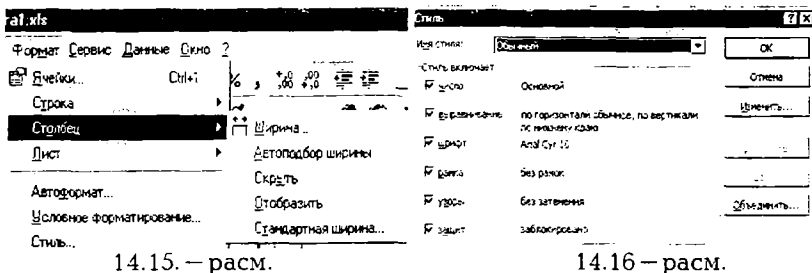 ra1.xls
Формат Сервис Данные Окно ?
Ячейки... Ctrl+1
Строка
Столбец
Лист
Автоформат...
Условное форматирование...
Стиль...
% ,
Ширина...
Автоподбор ширины
Скрыть
Отобразить
Стандартная ширина...
14.15. — расм.
Стиль
Имя стиля: Обычный
OK
Стиль включает
Отмена
число Основной
Изменить...
выравнивание по горизонтали обычное, по вертикали
по нижнему краю
шрифт Arial Cyr 10
рамки без рамок
узоры без затенения
Объединить...
защит заблокировано
14.16 — расм.